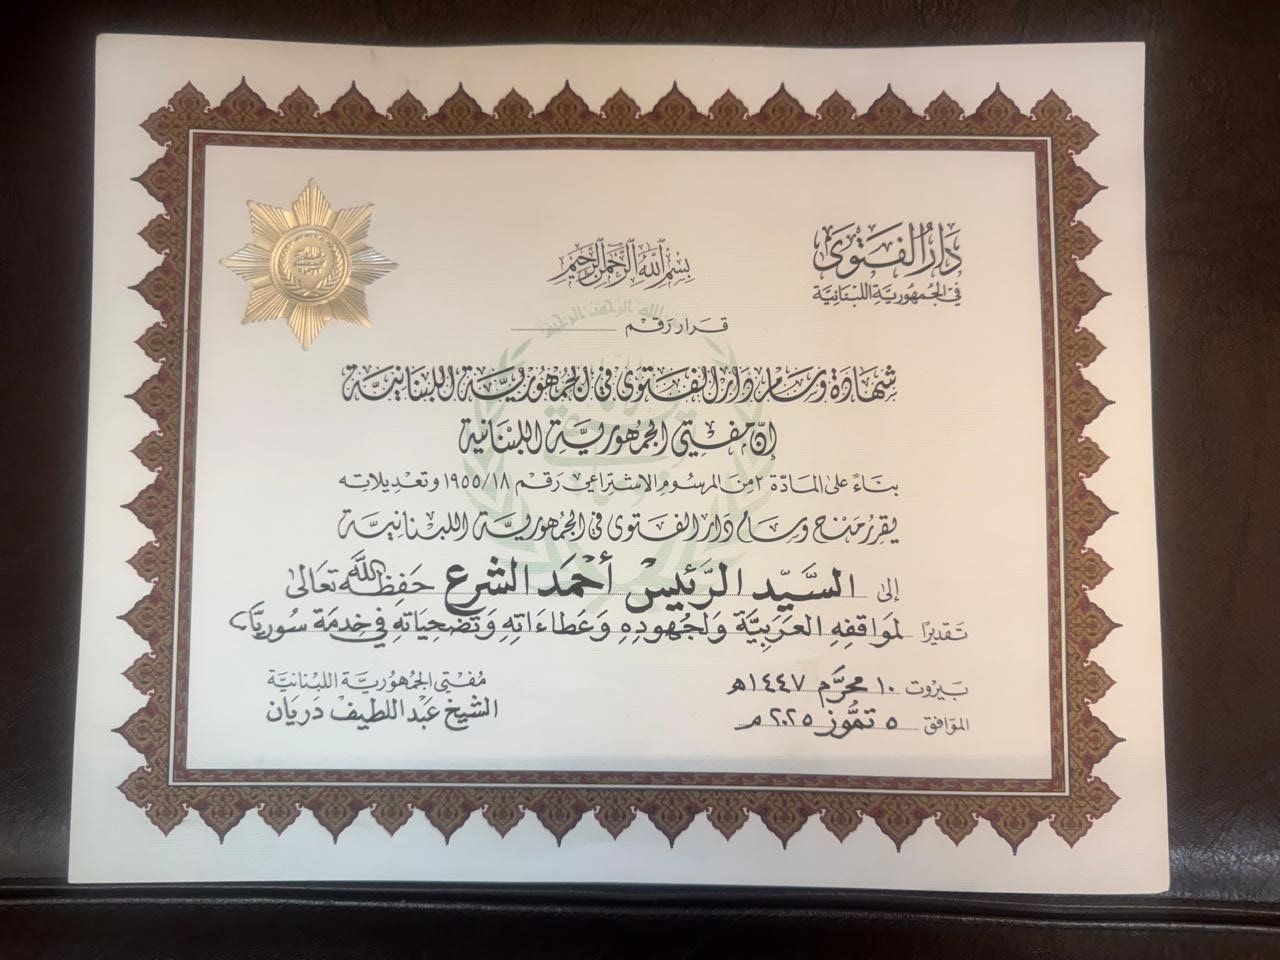 دار الفتوى
في الجمهورية اللبنانية
بسم الله الرحمن الرحيم
قرار رقم
شهادة وسام دار الفتوى في الجمهورية اللبنانية
إنّ مفتي الجمهورية اللبنانية
بناءً على المادة ٢ من المرسوم الاشتراعي رقم ١٩٥٥/١٨ وتعديلاته
يقرر منح وسام دار الفتوى في الجمهورية اللبنانية
إلى السَّيِّد الرَّئيس أحمَد الشرع حَفِظَهُ الله تعَالى
تقديرًا لمَواقفِهِ العَرَبيَّة وَلجُهودِهِ وَعَطاءَاتِهِ وَتَضحِيَاتِهِ في خِدمَة سُوريَّا
بيروت ١٠ محرَّم ١٤٤٧هـ
الموافق ٥ تمُّوز ٢٠٢٥م
مُفتي الجمهُوريَّة اللبنانية
الشيخ عَبد اللطيف دَريَان